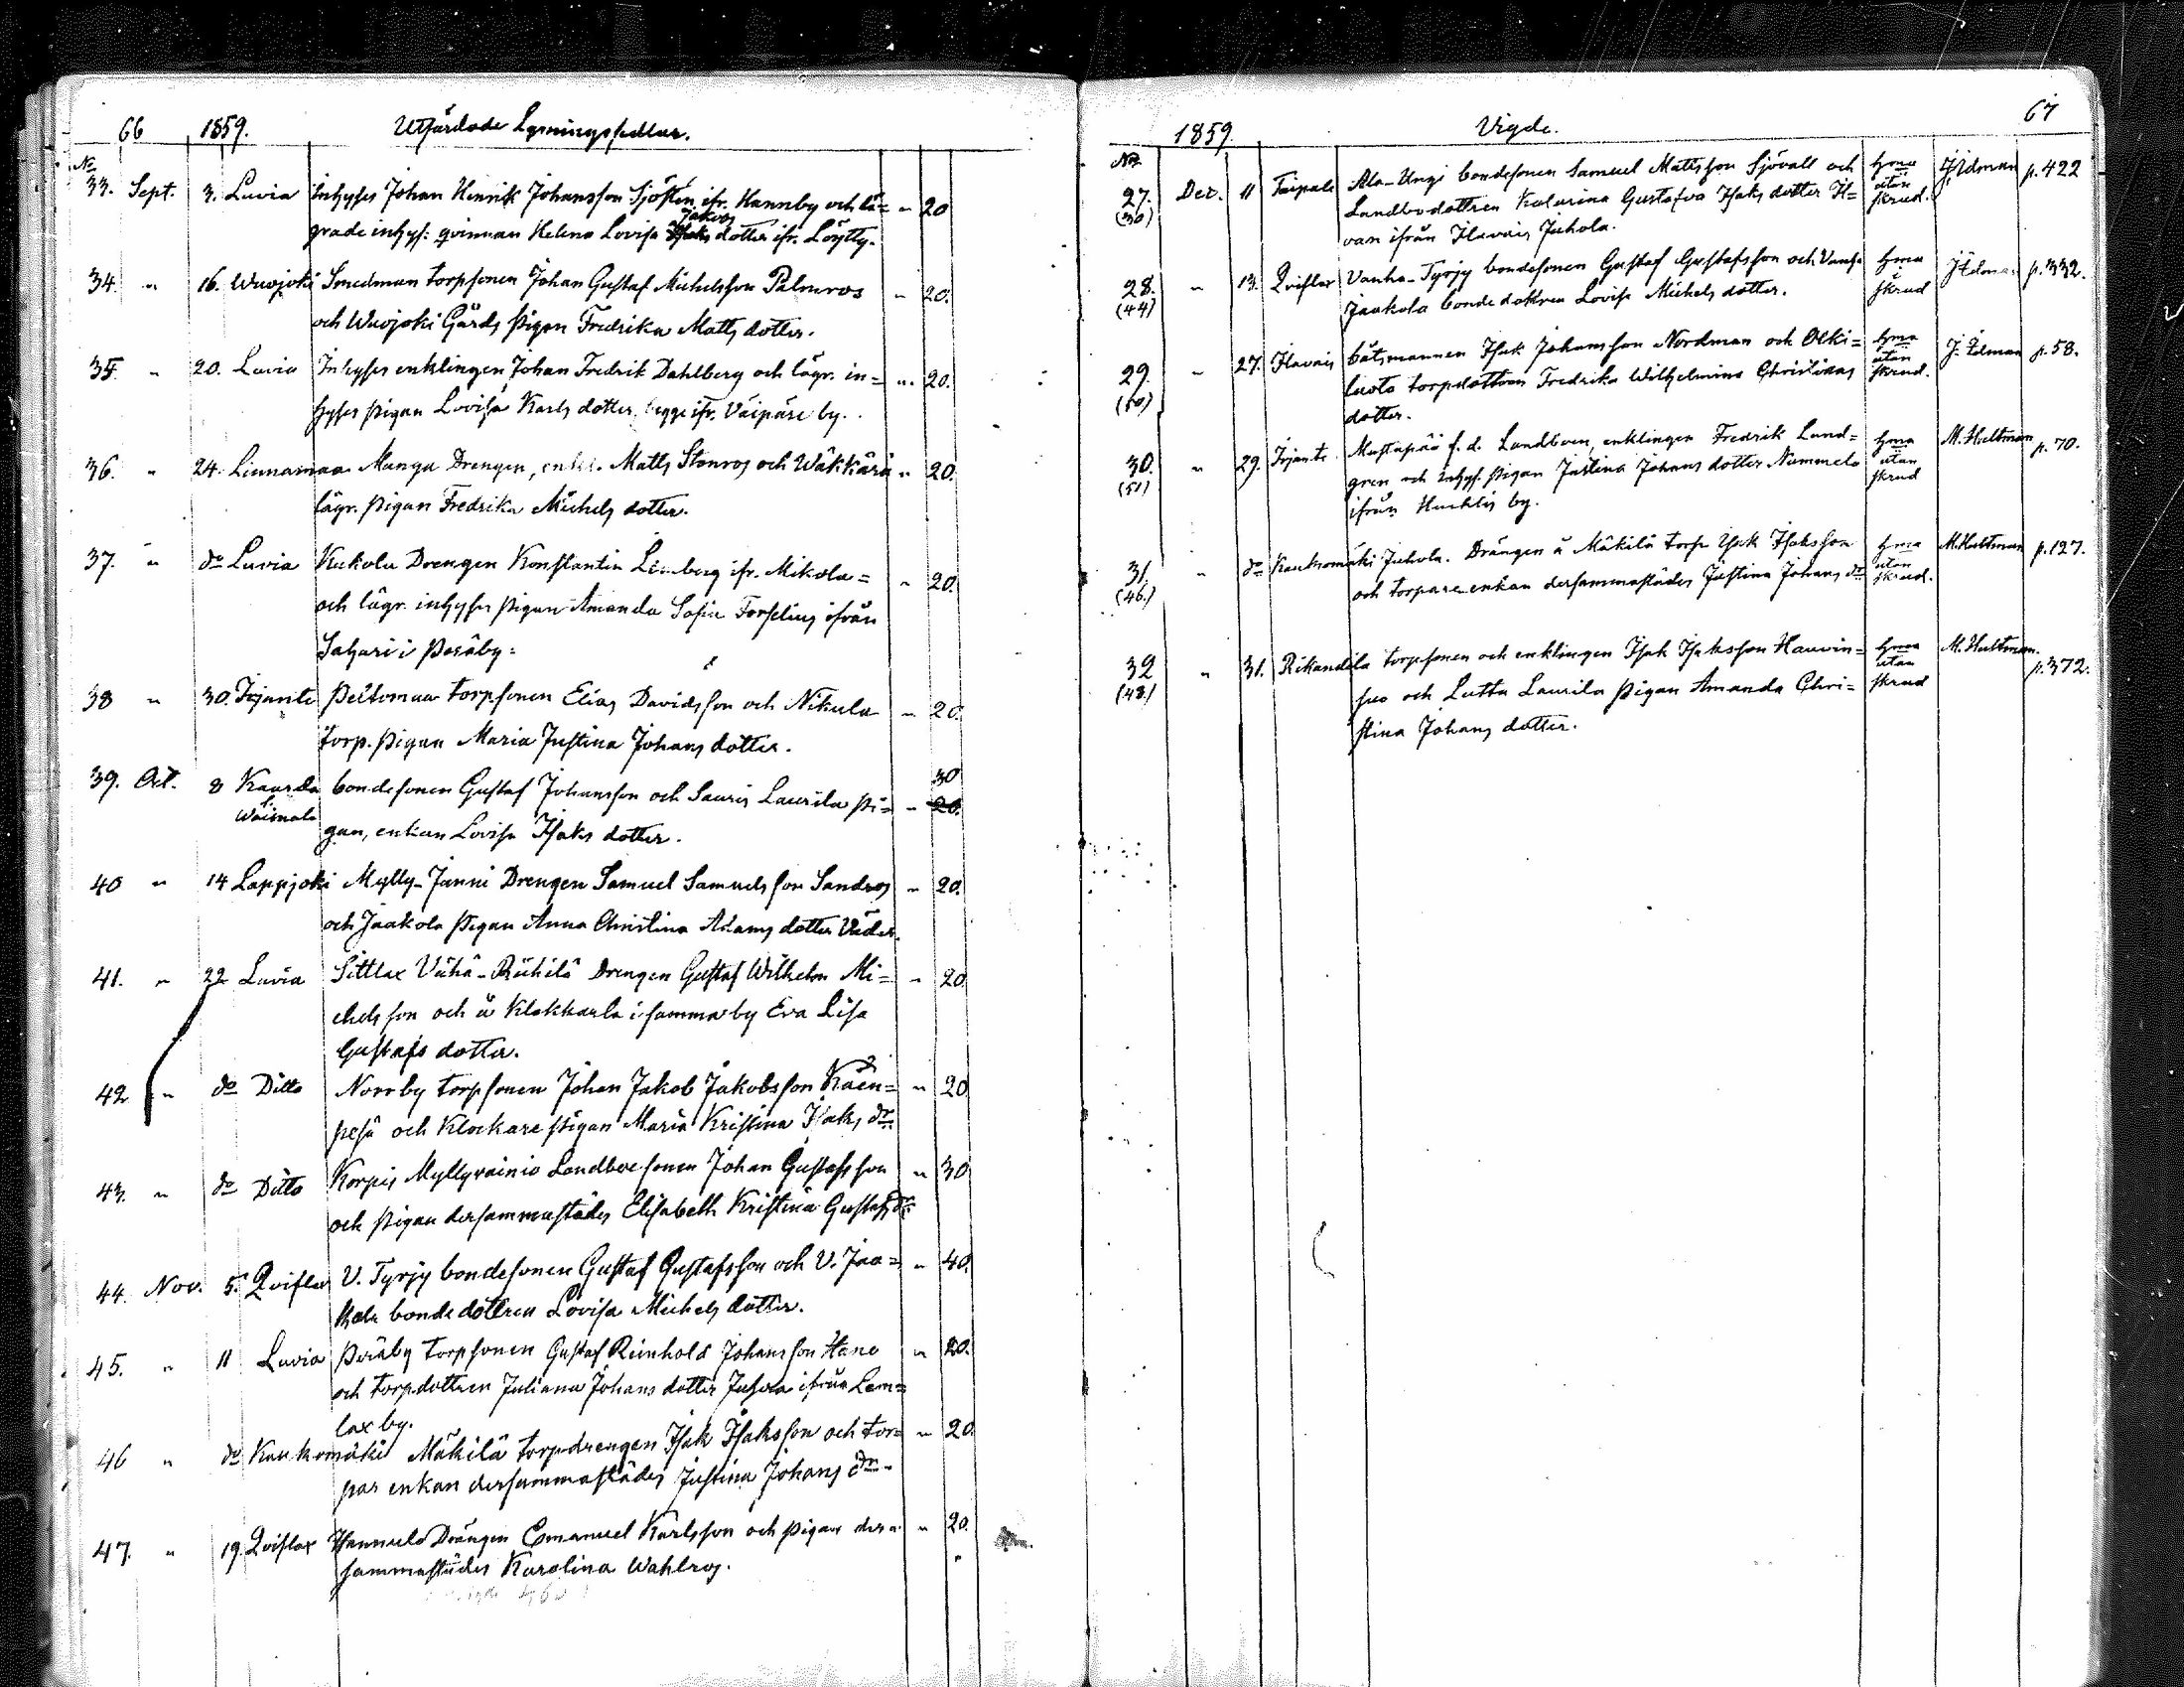 66 1859. Utfärdade Lysningssedlar.
No
33. Sept. 3. Luvia Inhyses Johan Henrik Johansson Sjösten ifr. Hannby och lä= " 20
Jakobs
grade inhys: qvinnan Helena Lovisa Isaks dotter ifr. Löytty.
34. " 16. Wuojoki Smedman torpsonen Johan Gustaf Michelsson Palmros " 20.
och Wuojoki Gårds pigan Fredrika Matts dotter.
35. " 20. Luvia Inhyses enklingen Johan Fredrik Dahlberg och lägr. in= " 20.
hyses pigan Lovisa Karls dotter begge ifr. Väipäre by.
36. " 24. Linnamaa Mangu Drengen, enkl. Matts Stenros och Wäkkärä " 20.
lägr. pigan Fredrika Michels dotter.
37. " do Luvia Kukola Drengen Konstantin Lindberg ifr. Mikola= " 20.
och lägr. inhyses pigan Amanda Sofia Forselius ifrån
Sahari i Peräby:
38 " 30. Irjante Peltomaa torpsonen Elias Davidsson och Nikula " 20.
torp. pigan Maria Justina Johans dotter.
30
39. Oct. 8 Kaunda bondesonen Gustaf Johansson och Sauris Laurila pi= " 20.
Wäimala
gan, enkan Lovisa Isaks dotter.
40 " 14 Lappjoki Mylly-Janni Drengen Samuel Samuelsson Sandros " 20.
och Jaakola pigan Anna Christina Adams dotter
41. " 22 Luvia Sittlax Vähä-Riihilä Drengen Gustaf Wilhelm Mi= " 20.
chelsson och å Klokkarla i samma by Eva Lisa
Gustafs dotter.
42 " do Ditto Norrby torpsonen Johan Jakob Jakobsson Kään= " 20
pesä och Klockare pigan Maria Kristina Isaks dr.
43. " do Ditto Korpis Myllyvainio Landboesonen Johan Gustafsson " 30
och pigan dersammastädes Elisabeth Kristina Gustafs dr.
44. Nov. 5. Qviflax V. Tyrjy bondesonen Gustaf Gustafsson och V. Jaa= " 40.
kola bondedottren Lovisa Michels dotter.
45. " 11 Luvia Peräby torpsonen Gustaf Reinhold Johansson Hane " 20.
och torpdottren Juliana Johans dotter Juhola ifrån Lem=
lax by.
46 " do Kaukomäki Mäkilä torpdrengen Isak Isaksson och tor= " 20.
par enkan dersammastädes Justina Johans dr.
47. " 19. Qviflax Hannula Drängen Emanuel Karlsson och pigan der= " 20.
sammastädes Karolina Wahlros.
1859. Vigde. 67
No
27. Dec. 11 Taipale Ala-Unzi bondesonen Samuel Mattsson Sjövall och hma J. Idman p. 422
(30) Landbodottren Katarina Gustafva Isaks dotter H= utan
van ifrån Ilavais Juhola. skrud.
28. " 13. Qviflax Vanha-Tyrjy bondesonen Gustaf Gustafsson och Vanha hma J. Idman p. 332.
(44) Jaakola bondedottren Lovisa Michels dotter. i skrud
29. " 27. Ilavais båtsmannen Isak Johansson Nordman och Olki= hma J. Idman p. 58.
(50) luoto torpdottren Fredrika Wilhelmina Christians utan skrud.
dotter.
30. " 29. Irjante Mustapää f. d. Landboen, enklingen Fredrik Lund= hma M. Hultman p. 70.
(51) gren och inhys. pigan Justina Johans dotter Nummela utan skrud
ifrån Huhkis by.
31. " do Kaukomäki Juhola. Drängen å Mäkilä torp Isak Isaksson hma M. Hultman p. 127.
(46.) och torpare enkan dersammastädes Justina Johans dr utan skrud.
32 " 31. Rikandila torpsonen och enklingen Isak Isaksson Hauvin= hma M. Hultman. p. 372.
(48.) suo och Lutta Laurila pigan Amanda Chri= utan skrud
stina Johans dotter.